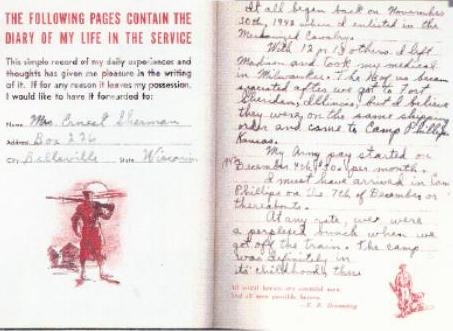 THE FOLLOWING PAGES CONTAIN THE
DIARY OF MY LIFE IN THE SERVICE
This simple record of my daily experiences and
thoughts has given me pleasure in the writing
of it. If for any reason it leaves my possession,
I would like to have it forwarded to:
Name Mrs. Ernest Sherman
Address Box 226
City Belleville State Wisconsin
It all began back on November
30th, 1942 when I enlisted in the
Mechanized Cavalry.
With 12 or 13 others I left
Madison and took my medical
in Milwaukee. The of us became
separated after we got to Fort
Sheridan, Illinois, but I believe
they were on the same shipping
order and came to Camp Phillips
Kansas.
My Army pay started on
December 4th, per month.
I must have arrived in Cam
Phillips on the 7th of December or
thereabouts.
At any rate, we were
a perplexed bunch when we
got off the train. The camp
was definitely in
its childhood then
And all men possible heroes.
—E. B. Browning